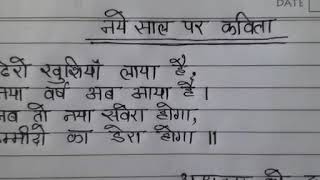 DATE
नये साल पर कविता
ढेरो खुशियाँ लाया है,
नया वर्ष अब आया है।
अब तो नया सवेरा होगा,
उम्मीदो का डेरा होगा॥